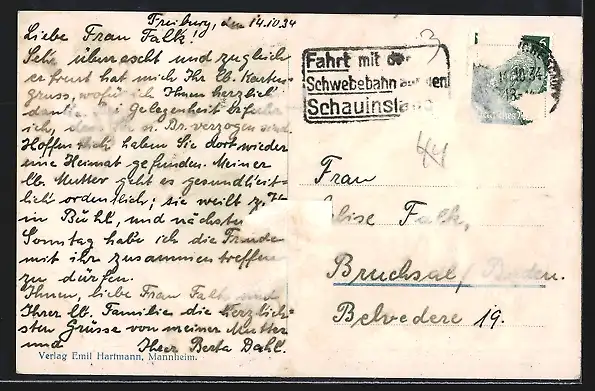 Freiburg, den 14.10.34
Liebe Frau Falk!
Sehr überrascht und zugleich
erfreut hat mich Ihr lb. Karten-
gruss, wofür ich Ihnen herzlich
danke. Bei Gelegenheit erfuhr
ich, n. Br. verzogen sind.
Hoffentlich haben Sie dort wieder
eine Heimat gefunden. Meiner
lb. Mutter geht es gesundheit-
lich ordentlich; sie weilt z. Zt.
in Bühl, und nächsten
Sonntag habe ich die Freude
mit ihr zusammentreffen
zu dürfen.
Ihnen, liebe Frau Falk und
Ihrer lb. Familie die herzlich-
sten Grüsse von meiner Mutter
und Ihrer Berta Dahl.
Verlag Emil Hartmann, Mannheim.
3
Fahrt mit der
Schwebebahn auf den
Schauinsland
10.34
44
Frau
lise Falk,
Bruchsal/Baden.
Belvedere 19.